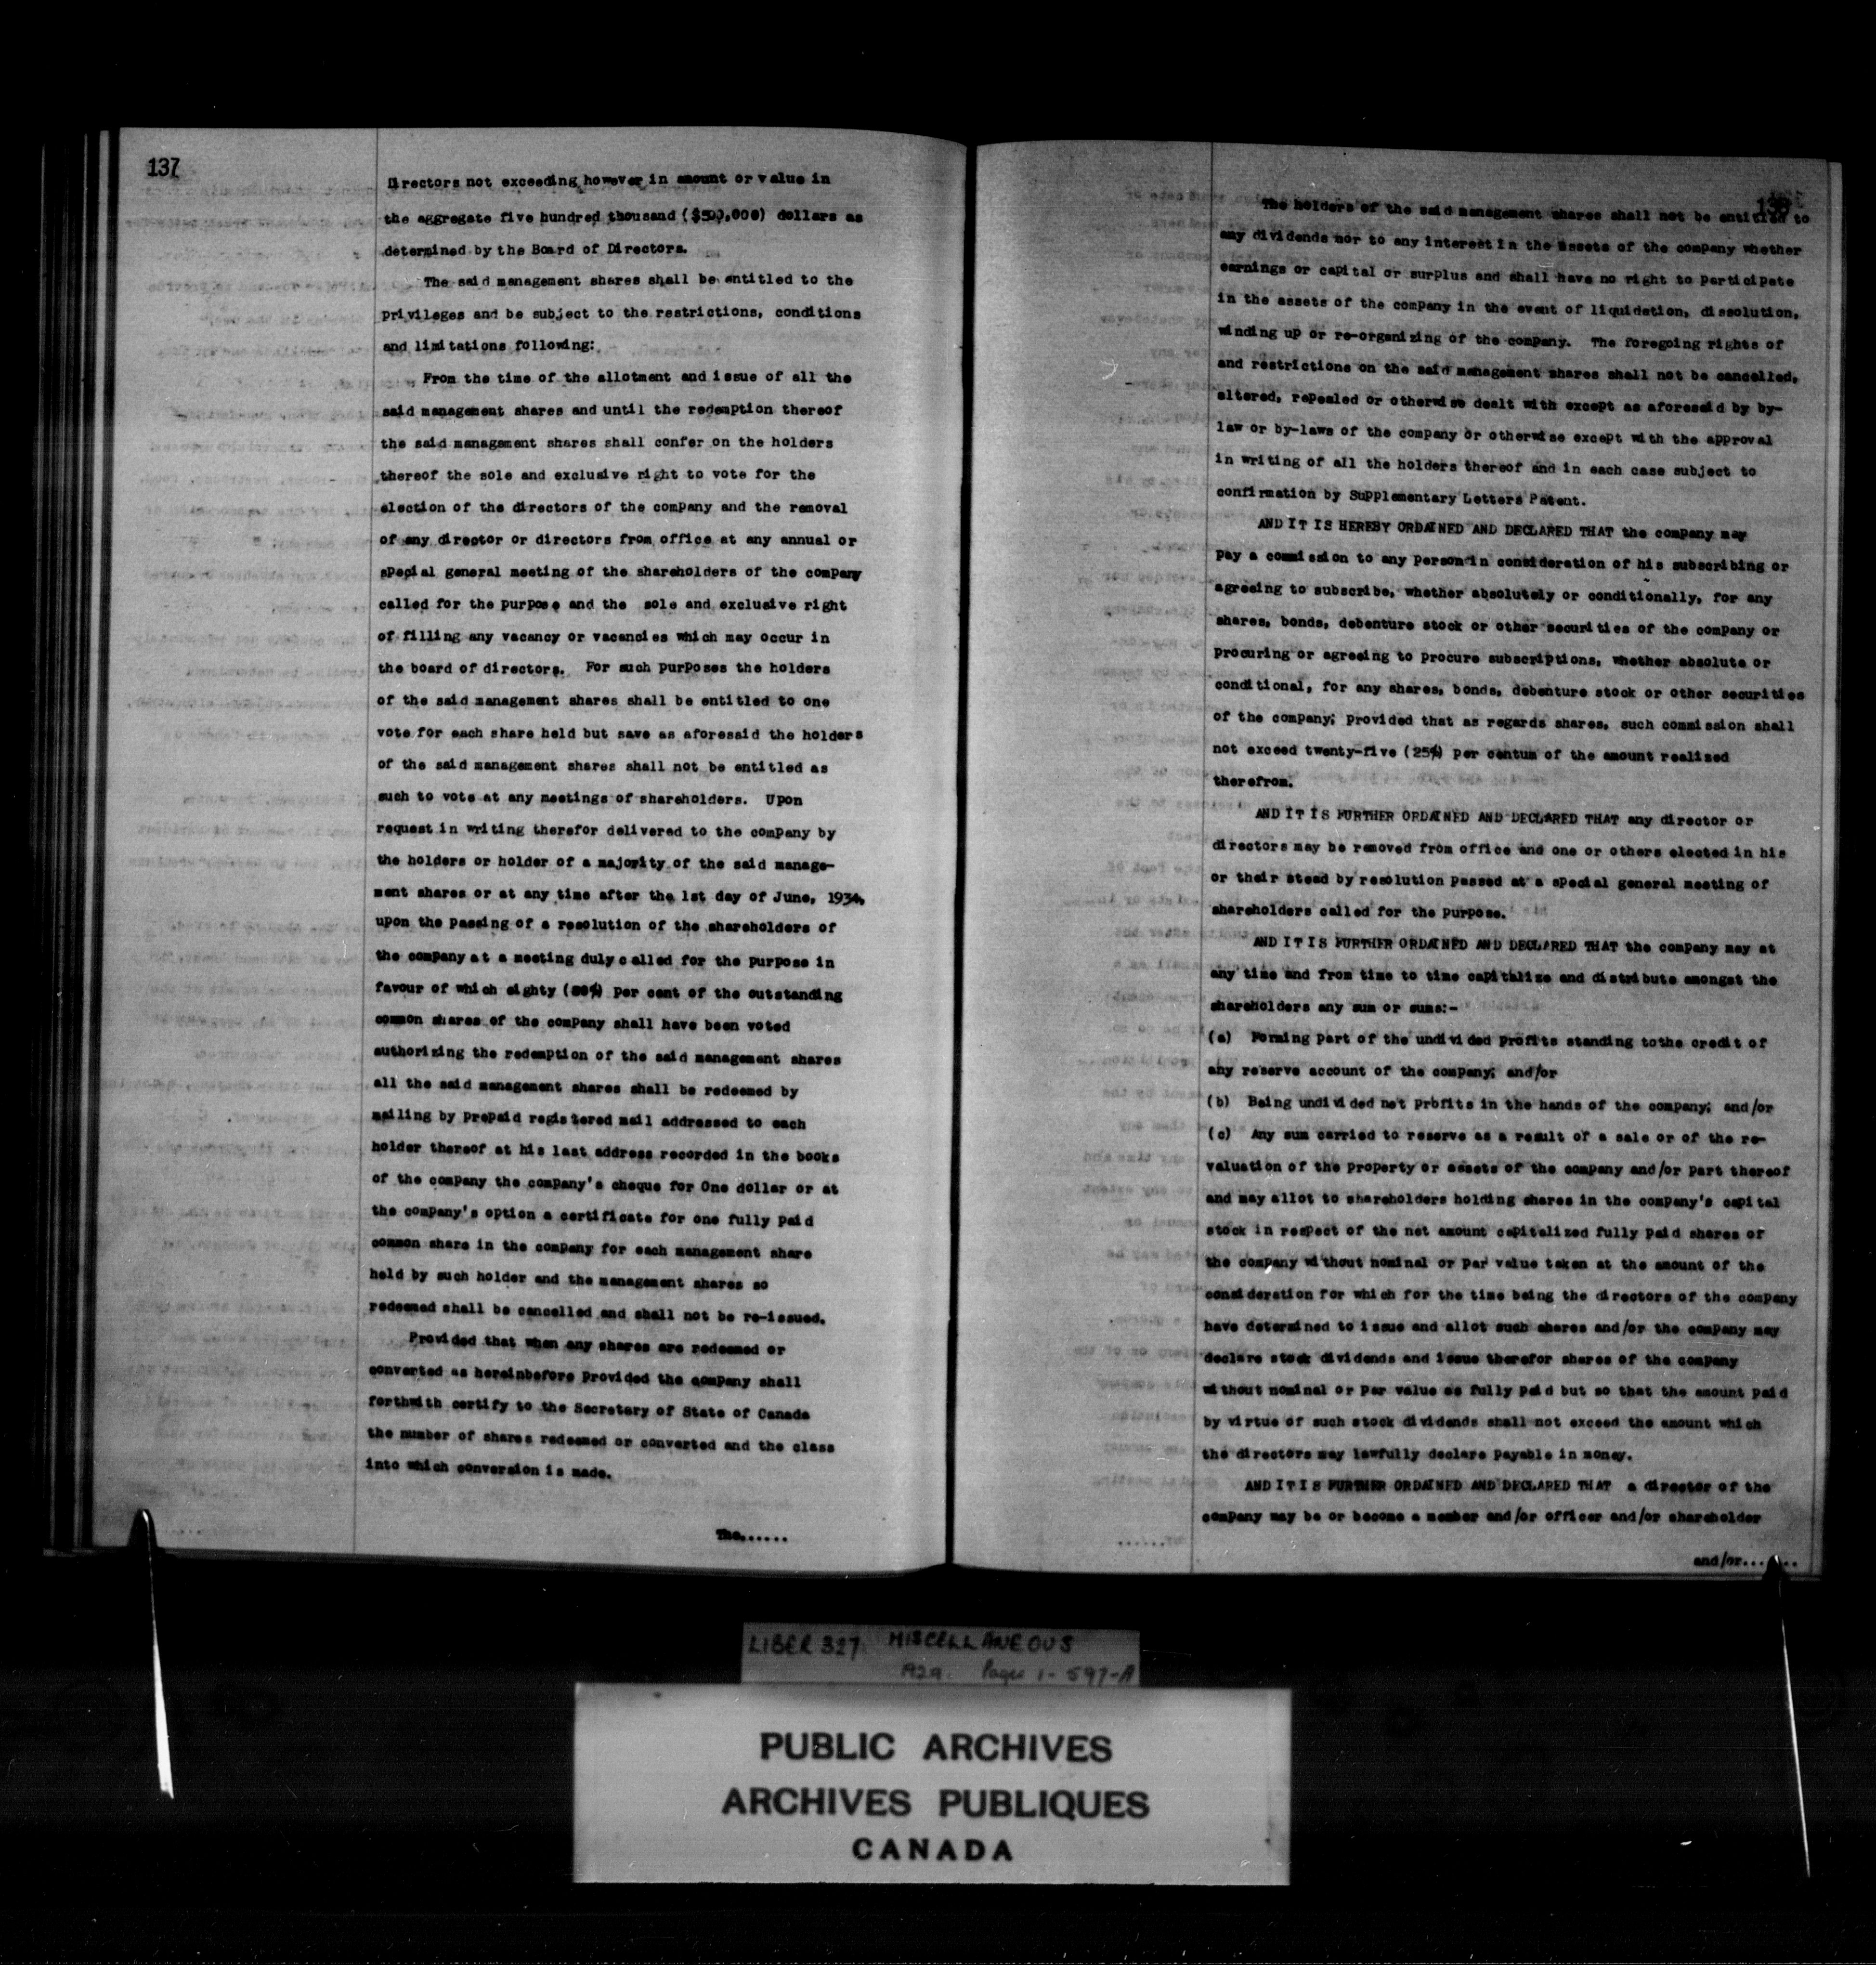 137
Directors not exceeding however in amount or value in
the aggregate five hundred thousand ($500,000) dollars as
determined by the Board of Directors.
The said management shares shall be entitled to the
privileges and be subject to the restrictions, conditions
and limitations following:
From the time of the allotment and issue of all the
said management shares and until the redemption thereof
the said management shares shall confer on the holders
thereof the sole and exclusive right to vote for the
election of the directors of the company and the removal
of any director or directors from office at any annual or
special general meeting of the shareholders of the company
called for the purpose and the sole and exclusive right
of filling any vacancy or vacancies which may occur in
the board of directors. For such purposes the holders
of the said management shares shall be entitled to one
vote for each share held but save as aforesaid the holders
of the said management shares shall not be entitled as
such to vote at any meetings of shareholders. Upon
request in writing therefor delivered to the company by
the holders or holder of a majority of the said manage-
ment shares or at any time after the 1st day of June, 1934,
upon the passing of a resolution of the shareholders of
the company at a meeting duly called for the purpose in
favour of which eighty (80%) per cent of the outstanding
common shares of the company shall have been voted
authorizing the redemption of the said management shares
all the said management shares shall be redeemed by
mailing by prepaid registered mail addressed to each
holder thereof at his last address recorded in the books
of the company the company's cheque for One dollar or at
the company's option a certificate for one fully paid
common share in the company for each management share
held by such holder and the management shares so
redeemed shall be cancelled and shall not be re-issued.
Provided that when any shares are redeemed or
converted as hereinbefore provided the company shall
forthwith certify to the Secretary of State of Canada
the number of shares redeemed or converted and the class
into which conversion is made.
The......
The holders of the said management shares shall not be entitled to
any dividends nor to any interest in the assets of the company whether
earnings or capital or surplus and shall have no right to participate
in the assets of the company in the event of liquidation, dissolution,
winding up or re-organizing of the company. The foregoing rights of
and restrictions on the said management shares shall not be cancelled,
altered, repealed or otherwise dealt with except as aforesaid by by-
law or by-laws of the company or otherwise except with the approval
in writing of all the holders thereof and in each case subject to
confirmation by Supplementary Letters Patent.
AND IT IS HEREBY ORDAINED AND DECLARED THAT the company may
pay a commission to any person in consideration of his subscribing or
agreeing to subscribe, whether absolutely or conditionally, for any
shares, bonds, debenture stock or other securities of the company or
procuring or agreeing to procure subscriptions, whether absolute or
conditional, for any shares, bonds, debenture stock or other securities
of the company; provided that as regards shares, such commission shall
not exceed twenty-five (25%) per centum of the amount realized
therefrom.
AND IT IS FURTHER ORDAINED AND DECLARED THAT any director or
directors may be removed from office and one or others elected in his
or their stead by resolution passed at a special general meeting of
shareholders called for the purpose.
AND IT IS FURTHER ORDAINED AND DECLARED THAT the company may at
any time and from time to time capitalize and distribute amongst the
shareholders any sum or sums:-
(a) Forming part of the undivided profits standing to the credit of
any reserve account of the company; and/or
(b) Being undivided net profits in the hands of the company; and/or
(c) Any sum carried to reserve as a result of a sale or of the re-
valuation of the property or assets of the company and/or part thereof
and may allot to shareholders holding shares in the company's capital
stock in respect of the net amount capitalized fully paid shares of
the company without nominal or par value taken at the amount of the
consideration for which for the time being the directors of the company
have determined to issue and allot such shares and/or the company may
declare stock dividends and issue therefor shares of the company
without nominal or par value as fully paid but so that the amount paid
by virtue of such stock dividends shall not exceed the amount which
the directors may lawfully declare payable in money.
AND IT IS FURTHER ORDAINED AND DECLARED THAT a director of the
company may be or become a member and/or officer and/or shareholder
and/or......
LIBER 327. MISCELLANEOUS
1929. Pages 1-597-A
PUBLIC ARCHIVES
ARCHIVES PUBLIQUES
CANADA